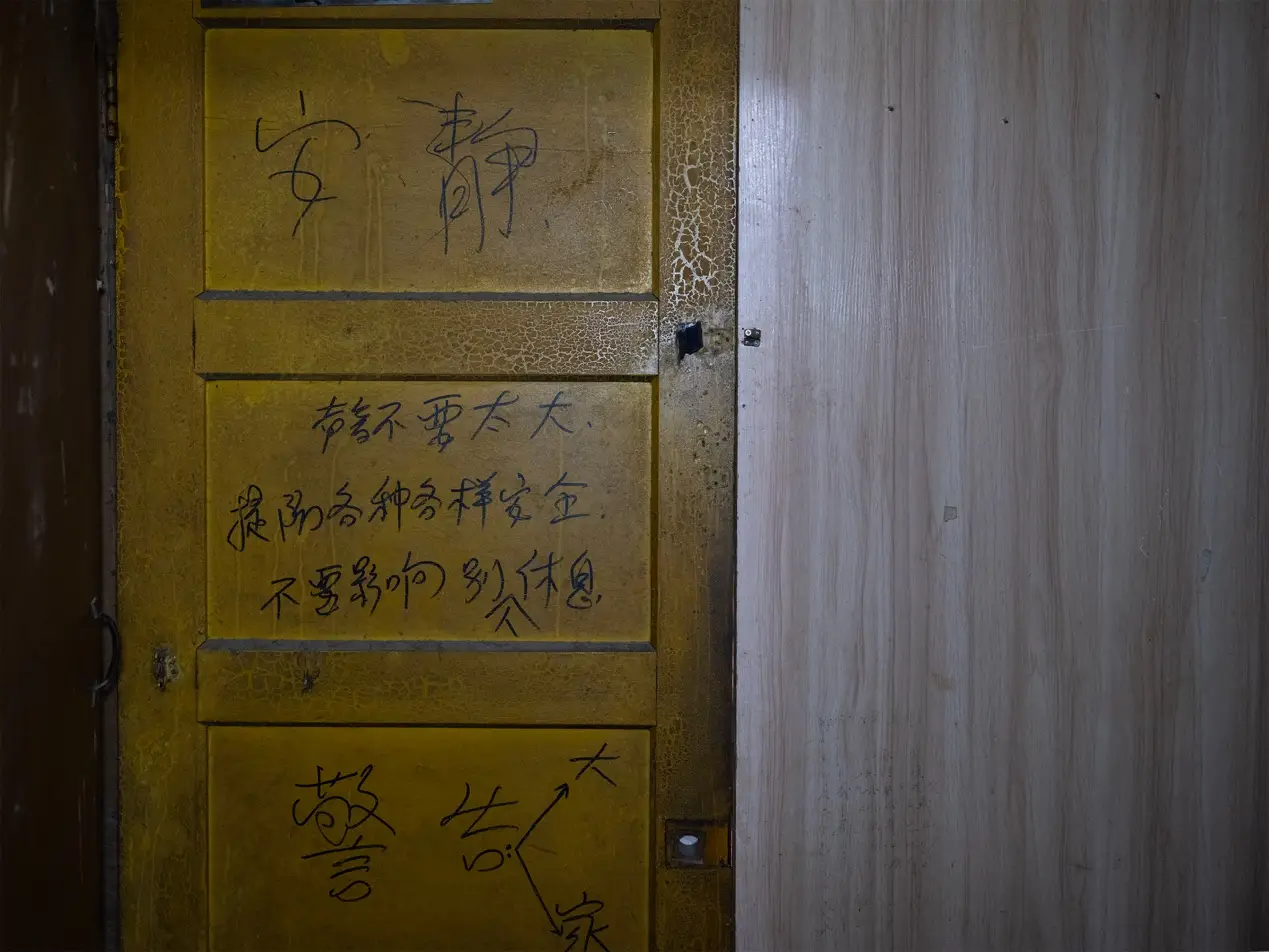 安静.
声音不要太大.
提防各种各样安全.
不要影响别人休息
警告:
大
家